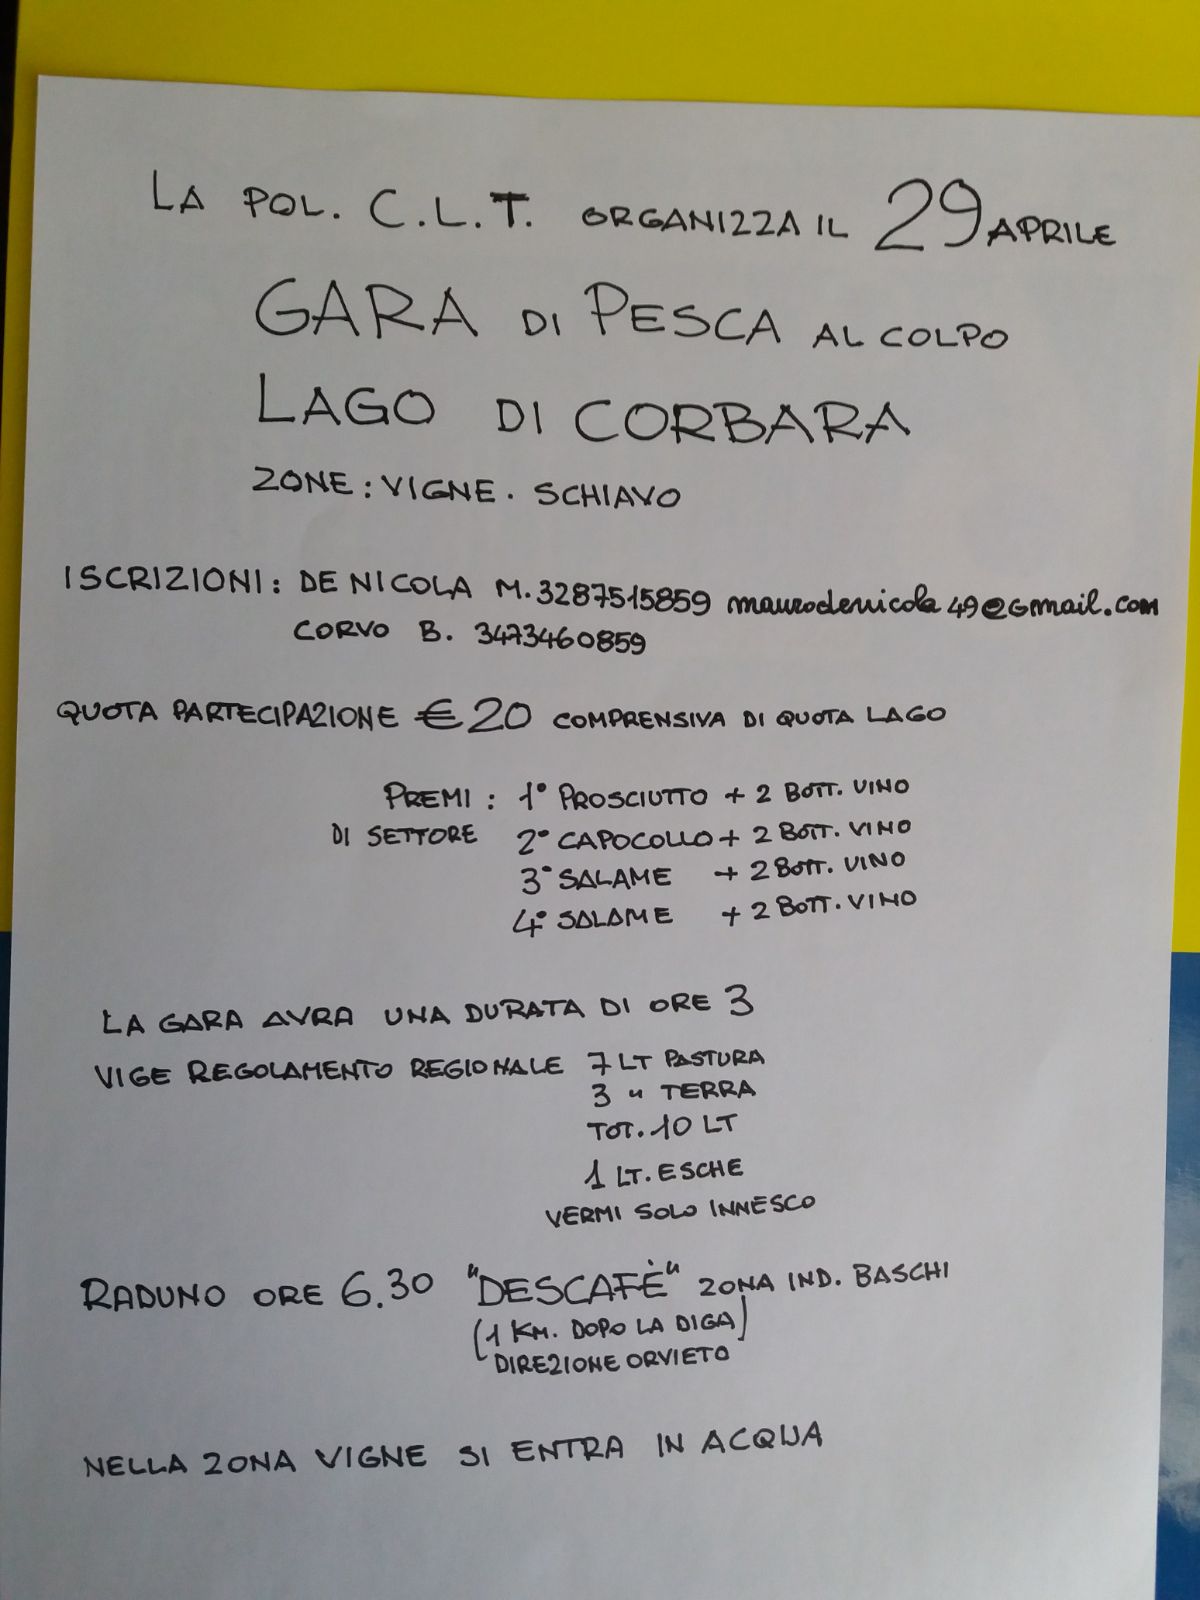 LA POL. C.L.T. ORGANIZZA IL 29 APRILE
GARA DI PESCA AL COLPO
LAGO DI CORBARA
ZONE: VIGNE. SCHIAVO
ISCRIZIONI: DE NICOLA M. 3287515859 maurodenicola49@Gmail.com
CORVO B. 3473460859
QUOTA PARTECIPAZIONE € 20 COMPRENSIVA DI QUOTA LAGO
PREMI: 1° PROSCIUTTO + 2 BOTT. VINO
DI SETTORE 2° CAPOCOLLO + 2 BOTT. VINO
3° SALAME + 2 BOTT. VINO
4° SALAME + 2 BOTT. VINO
LA GARA AVRA UNA DURATA DI ORE 3
VIGE REGOLAMENTO REGIONALE 7 LT PASTURA
3 " TERRA
TOT. 10 LT
1 LT. ESCHE
VERMI SOLO INNESCO
RADUNO ORE 6.30 "DESCAFÈ" ZONA IND. BASCHI
(1 KM. DOPO LA DIGA)
DIREZIONE ORVIETO
NELLA ZONA VIGNE SI ENTRA IN ACQUA